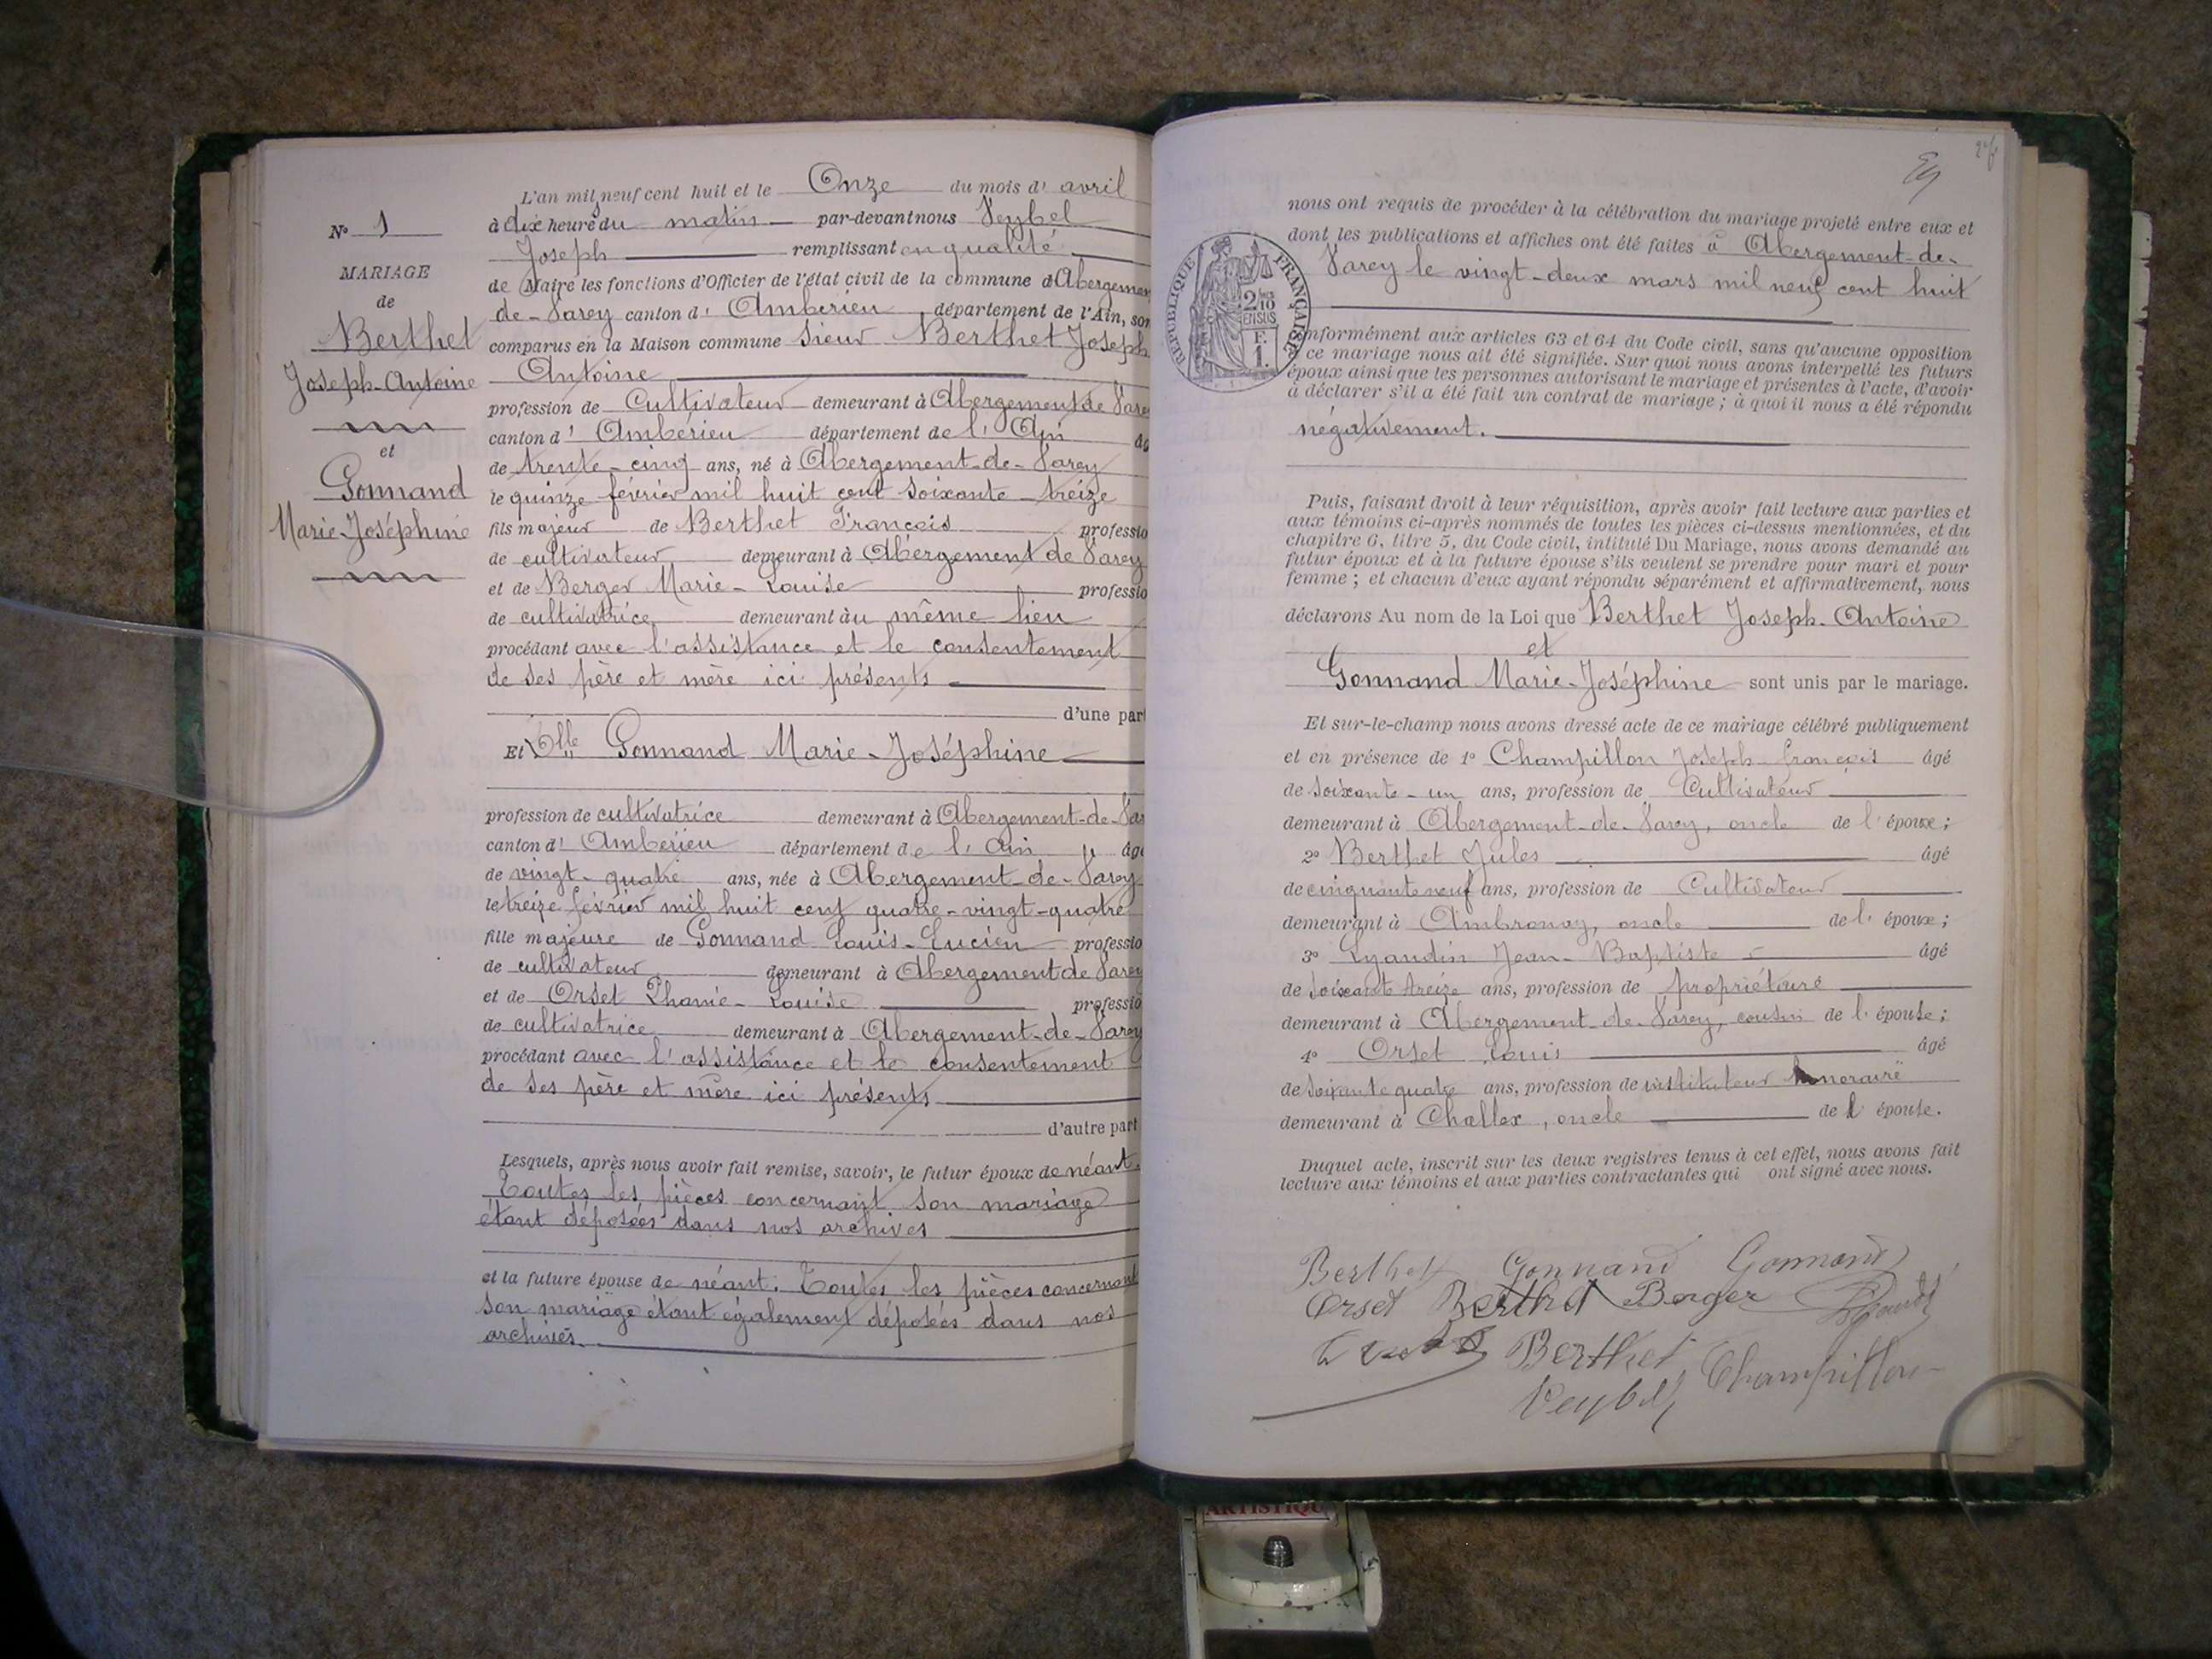 L'an mil neuf cent huit et le Onze du mois d' avril
à dix heure du matin par-devant nous Veybel
Joseph remplissant en qualité
de Maire les fonctions d'Officier de l'état civil de la commune d'Abergemen
de-Varey canton d' Ambérieu département de l'Ain, son
comparus en la Maison commune Sieur Berthet Joseph
Antoine
profession de Cultivateur demeurant à Abergement de Varey
canton d' Ambérieu département de l' Ain âg
de trente-cinq ans, né à Abergement-de-Varey
le quinze février mil huit cent soixante-treize
fils majeur de Berthet François professio
de cultivateur demeurant à Abergement de Varey
et de Berger Marie-Louise professio
de cultivatrice demeurant au même lieu
procédant avec l'assistance et le consentement
de ses père et mère ici présents
d'une part
Et Dlle Gonnand Marie-Joséphine
profession de cultivatrice demeurant à Abergement-de-Var
canton d' Ambérieu département de l' Ain âgé
de vingt-quatre ans, née à Abergement-de-Varey
le treize février mil huit cent quatre-vingt-quatre
fille majeure de Gonnand Louis-Lucien professio
de cultivateur demeurant à Abergement de Varey
et de Orset Phanie-Louise professio
de cultivatrice demeurant à Abergement-de-Varey
procédant avec l'assistance et le consentement
de ses père et mère ici présents
d'autre part
Lesquels, après nous avoir fait remise, savoir, le futur époux de néant.
Toutes les pièces concernant son mariage
étant déposées dans nos archives
et la future épouse de néant. Toutes les pièces concernant
son mariage étant également déposées dans nos
archives.
N° 1
MARIAGE
de
Berthet
Joseph-Antoine
et
Gonnand
Marie-Joséphine
nous ont requis de procéder à la célébration du mariage projeté entre eux et
dont les publications et affiches ont été faites à Abergement-de-
Varey le vingt-deux mars mil neuf cent huit
RÉPUBLIQUE FRANÇAISE
2/10 EN SUS
F.
1.
nformément aux articles 63 et 64 du Code civil, sans qu'aucune opposition
à ce mariage nous ait été signifiée. Sur quoi nous avons interpellé les futurs
époux ainsi que les personnes autorisant le mariage et présentes à l'acte, d'avoir
à déclarer s'il a été fait un contrat de mariage ; à quoi il nous a été répondu
négativement.
Puis, faisant droit à leur réquisition, après avoir fait lecture aux parties et
aux témoins ci-après nommés de toutes les pièces ci-dessus mentionnées, et du
chapitre 6, titre 5, du Code civil, intitulé Du Mariage, nous avons demandé au
futur époux et à la future épouse s'ils veulent se prendre pour mari et pour
femme ; et chacun d'eux ayant répondu séparément et affirmativement, nous
déclarons Au nom de la Loi que Berthet Joseph-Antoine
et
Gonnand Marie-Joséphine sont unis par le mariage.
Et sur-le-champ nous avons dressé acte de ce mariage célébré publiquement
et en présence de 1° Champillon Joseph françois âgé
de soixante-un ans, profession de Cultivateur
demeurant à Abergement-de-Varey, oncle de l'époux ;
2° Berthet Jules âgé
de cinquante neuf ans, profession de Cultivateur
demeurant à Ambronay, oncle de l' époux ;
3° Lyaudin Jean-Baptiste âgé
de soixante treize ans, profession de propriétaire
demeurant à Abergement-de-Varey, cousin de l' épouse ;
4° Orset Louis âgé
de soixante quatre ans, profession de instituteur honoraire
demeurant à Challex, oncle de l' épouse.
Duquel acte, inscrit sur les deux registres tenus à cet effet, nous avons fait
lecture aux témoins et aux parties contractantes qui ont signé avec nous.
Berthet Gonnand Gonnand
Orset Berthet Berger
Berthet Champillon
Veybel
ARTISTIQU